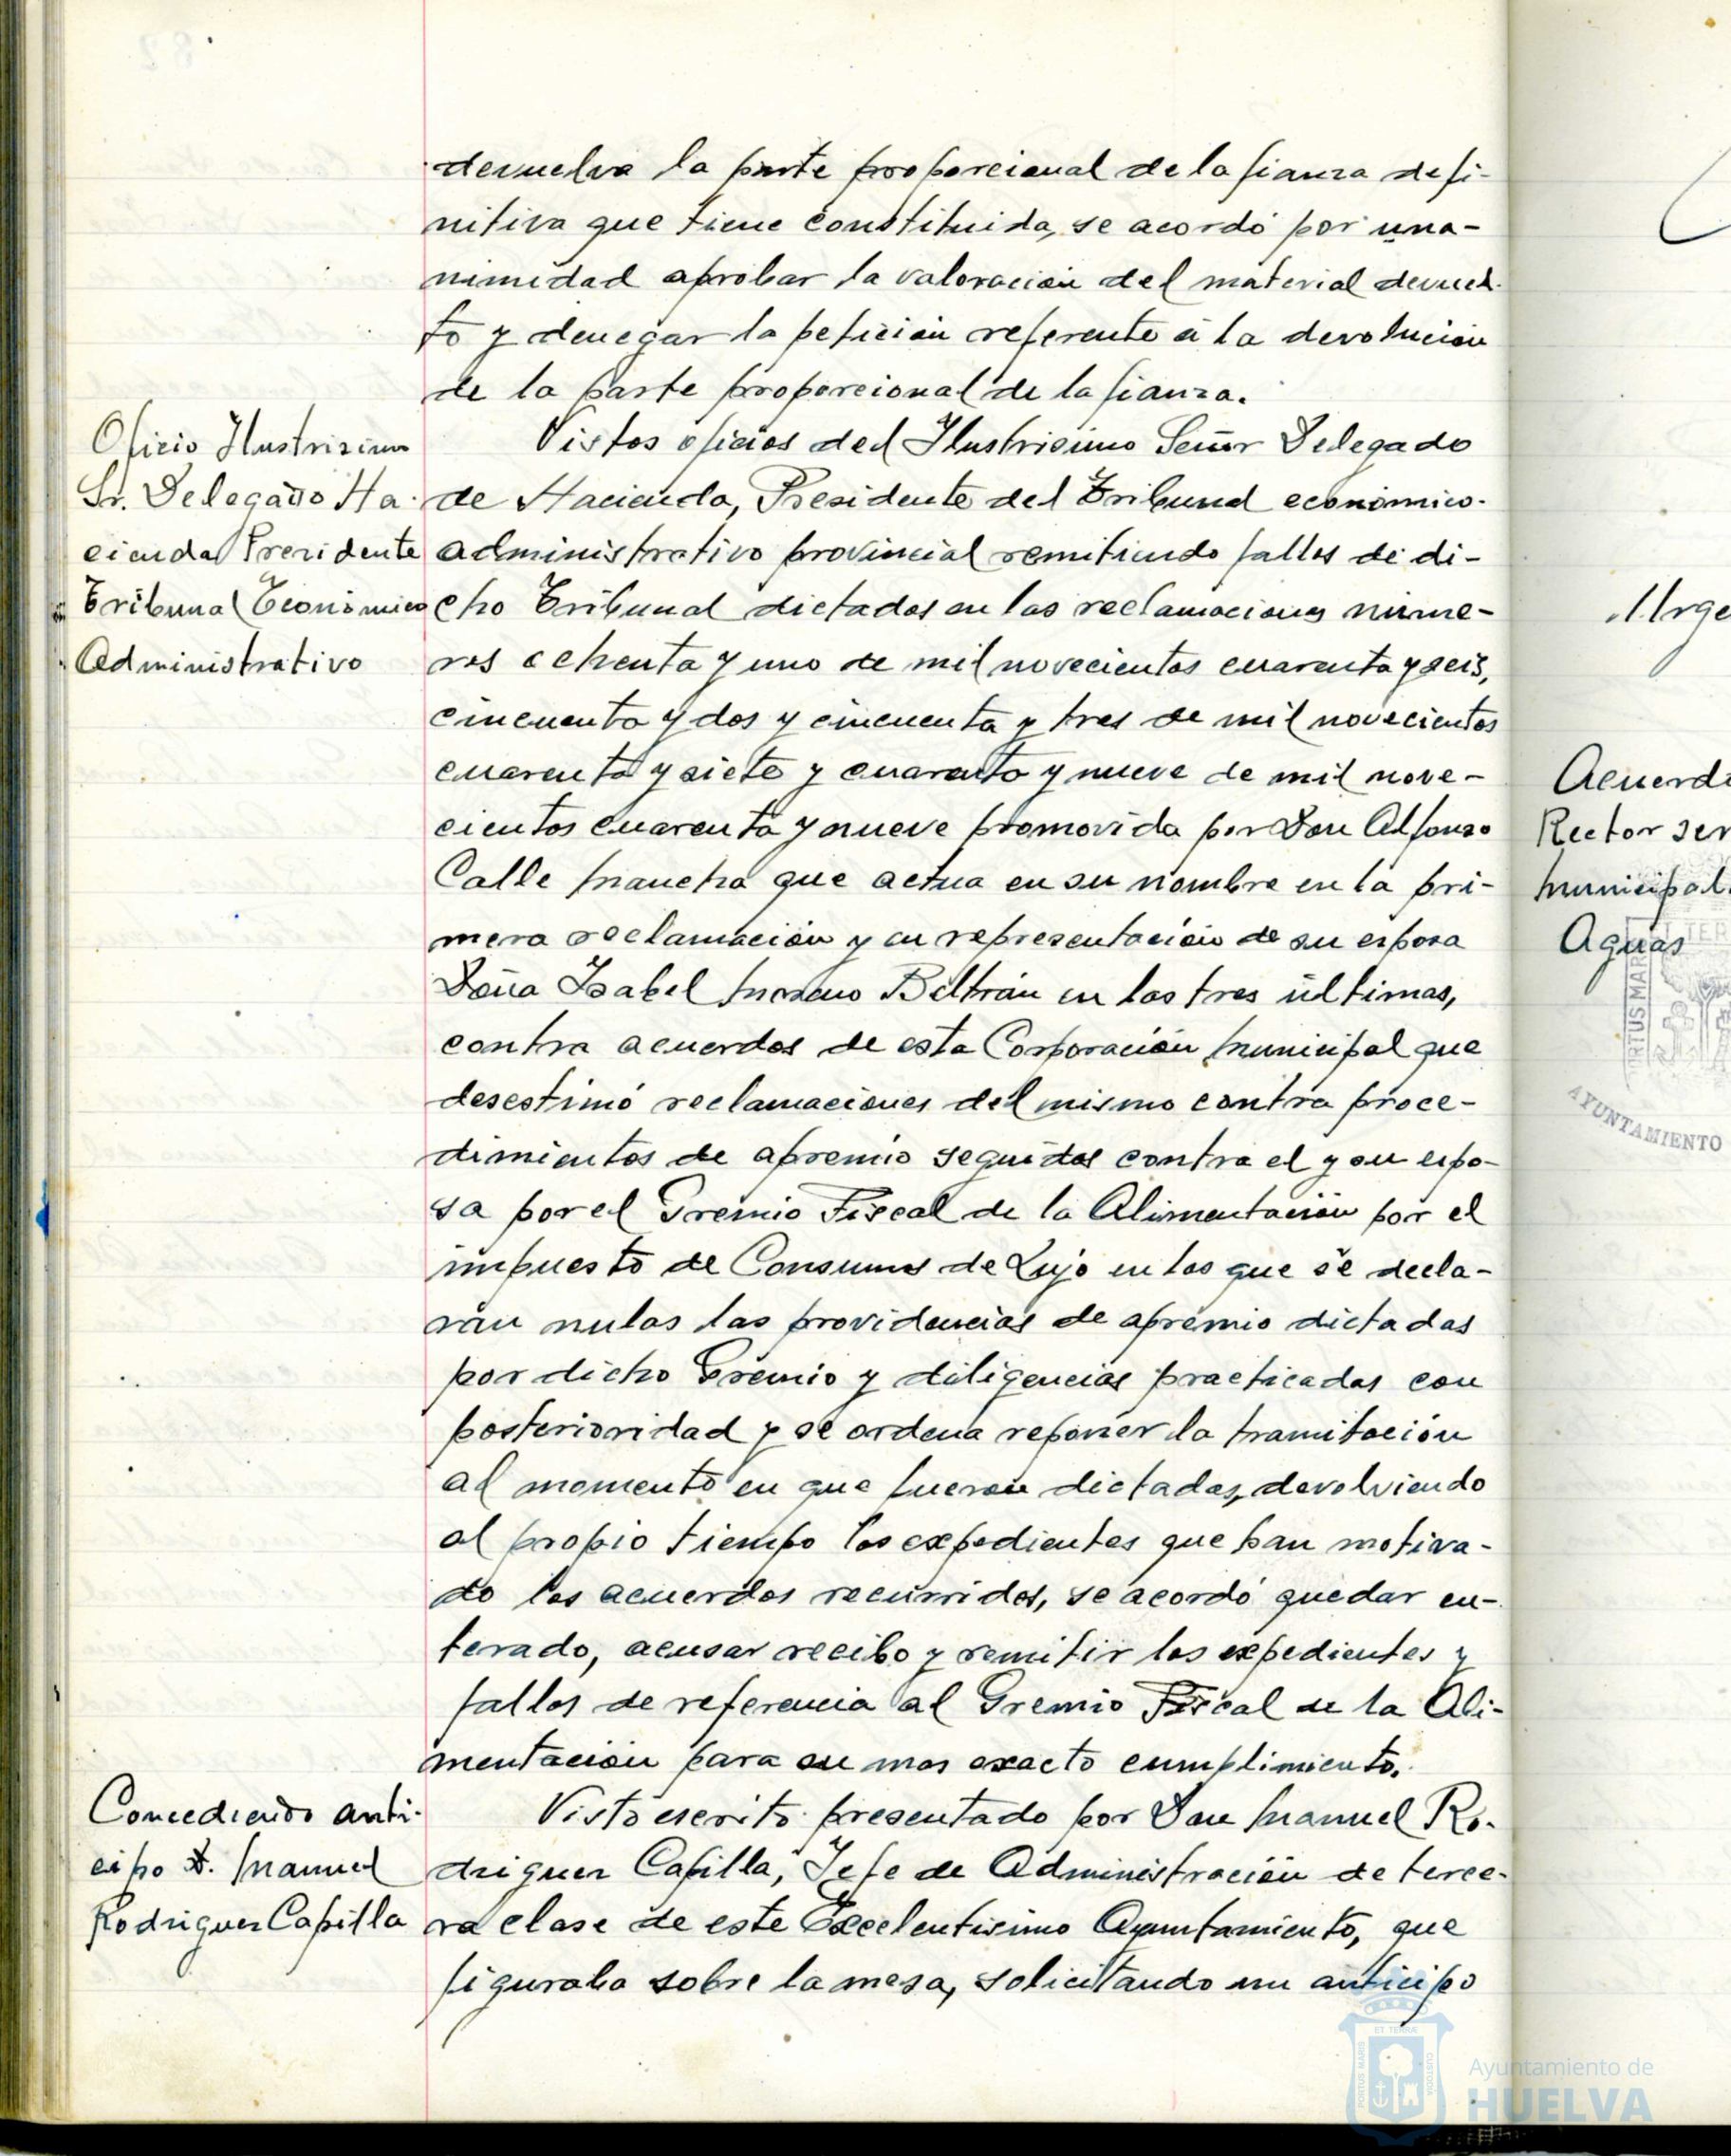 devuelva la parte proporcional de la fianza defi-
nitiva que tiene constituida, se acordó por una-
nimidad aprobar la valoración del material devuel-
to y denegar la petición referente a la devolución
de la parte proporcional de la fianza.
Oficio Ilustrisimo
Sr. Delegado Ha-
cienda Presidente
Tribunal Económico
Administrativo
Vistos oficios del Ilustrisimo Señor Delegado
de Hacienda, Presidente del Tribunal económico-
administrativo provincial remitiendo fallos de di-
cho Tribunal dictados en las reclamaciones núme-
ros ochenta y uno de mil novecientos cuarenta y seis,
cincuenta y dos y cincuenta y tres de mil novecientos
cuarenta y siete y cuarenta y nueve de mil nove-
cientos cuarenta y nueve promovida por Don Alfonso
Calle Mancha que actua en su nombre en la pri-
mera reclamación y en representación de su esposa
Doña Isabel Moreno Beltrán en las tres últimas,
contra acuerdos de esta Corporación Municipal que
desestimó reclamaciones del mismo contra proce-
dimientos de apremio seguidos contra el y su espo-
sa por el Gremio Fiscal de la Alimentación por el
impuesto de Consumos de Lujo en los que se decla-
ran nulas las providencias de apremio dictadas
por dicho Gremio y diligencias practicadas con
posterioridad y se ordena reponer la tramitación
al momento en que fueron dictadas, devolviendo
al propio tiempo los expedientes que han motiva-
do los acuerdos recurridos, se acordó quedar en-
terado, acusar recibo y remitir los expedientes y
fallos de referencia al Gremio Fiscal de la Ali-
mentación para su mas exacto cumplimiento.
Concediendo anti-
cipo D. Manuel
Rodriguez Capilla
Visto escrito presentado por Don Manuel Ro-
driguez Capilla, Jefe de Administración de terce-
ra clase de este Excelentisimo Ayuntamiento, que
figuraba sobre la mesa, solicitando un anticipo
Urge
Acuerd
Rector ser
Municipal
Aguas
AYUNTAMIENTO
Ayuntamiento de
HUELVA